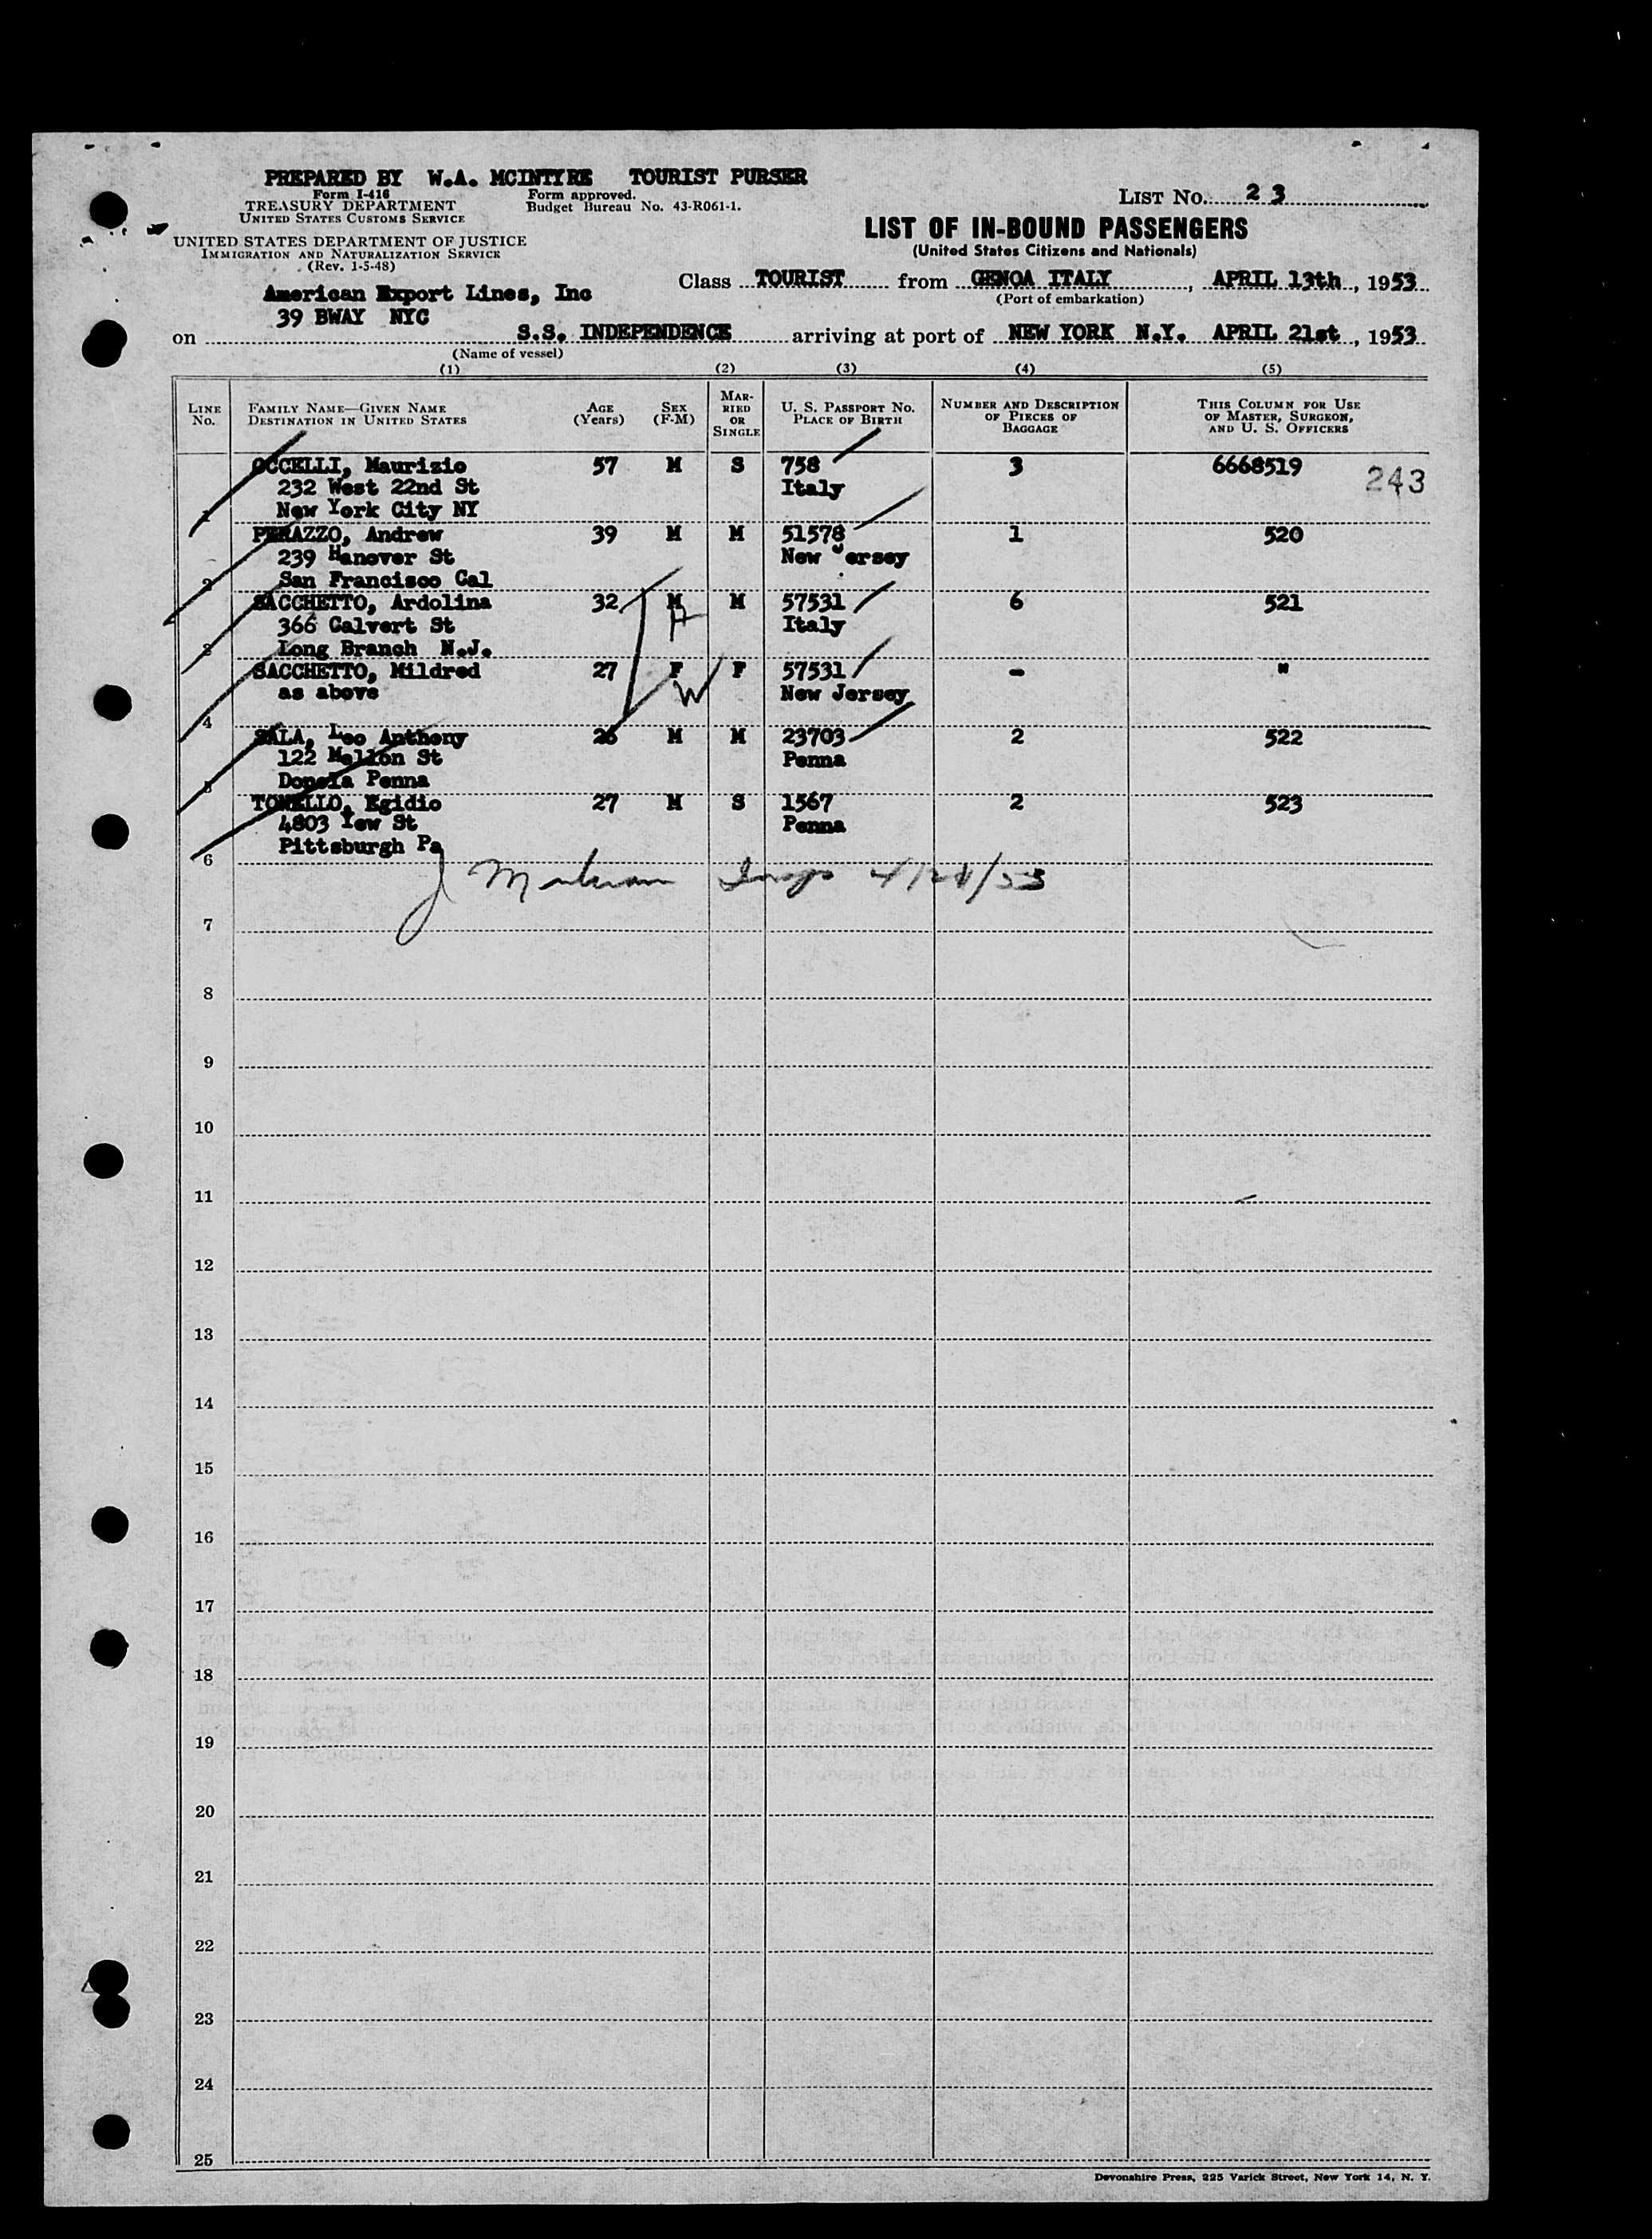 PREPARED BY W.A. MCINTYRE TOURIST PURSER
Form I-416
TREASURY DEPARTMENT
UNITED STATES CUSTOMS SERVICE
Form approved.
Budget Bureau No. 43-R061-1.
LIST NO. 2 3
UNITED STATES DEPARTMENT OF JUSTICE
IMMIGRATION AND NATURALIZATION SERVICE
(Rev. 1-5-48)
LIST OF IN-BOUND PASSENGERS
(United States Citizens and Nationals)
Class TOURIST from GENOA ITALY, APRIL 13th, 1953
(Port of embarkation)
American Export Lines, Inc
39 BWAY NYC
on S.S. INDEPENDENCE arriving at port of NEW YORK N.Y. APRIL 21st, 1953
(Name of vessel)
(1) (2) (3) (4) (5)
LINE NO.
FAMILY NAME—GIVEN NAME
DESTINATION IN UNITED STATES
AGE
(Years)
SEX
(F-M)
MAR-
RIED
OR
SINGLE
U. S. PASSPORT NO.
PLACE OF BIRTH
NUMBER AND DESCRIPTION
OF PIECES OF
BAGGAGE
THIS COLUMN FOR USE
OF MASTER, SURGEON,
AND U. S. OFFICERS
OCCELLI, Maurizio 57 M S 758 3 6668519 243
232 West 22nd St Italy
1 New York City NY
PERAZZO, Andrew 39 M M 51578 1 520
239 Hanover St New Jersey
2 San Francisco Cal
SACCHETTO, Ardolina 32 M M 57531 6 521
366 Calvert St Italy
3 Long Branch N.J.
SACCHETTO, Mildred 27 F F 57531 - "
as above New Jersey
W
4
SALA, Leo Anthony 26 M M 23703 2 522
122 Mellon St Penna
5 Donola Penna
TONELLO, Egidio 27 M S 1567 2 523
4803 Yew St Penna
6 Pittsburgh Pa
J 4/21/53
7
8
9
10
11
12
13
14
15
16
17
18
19
20
21
22
23
24
25
Devonshire Press, 225 Varick Street, New York 14, N. Y.